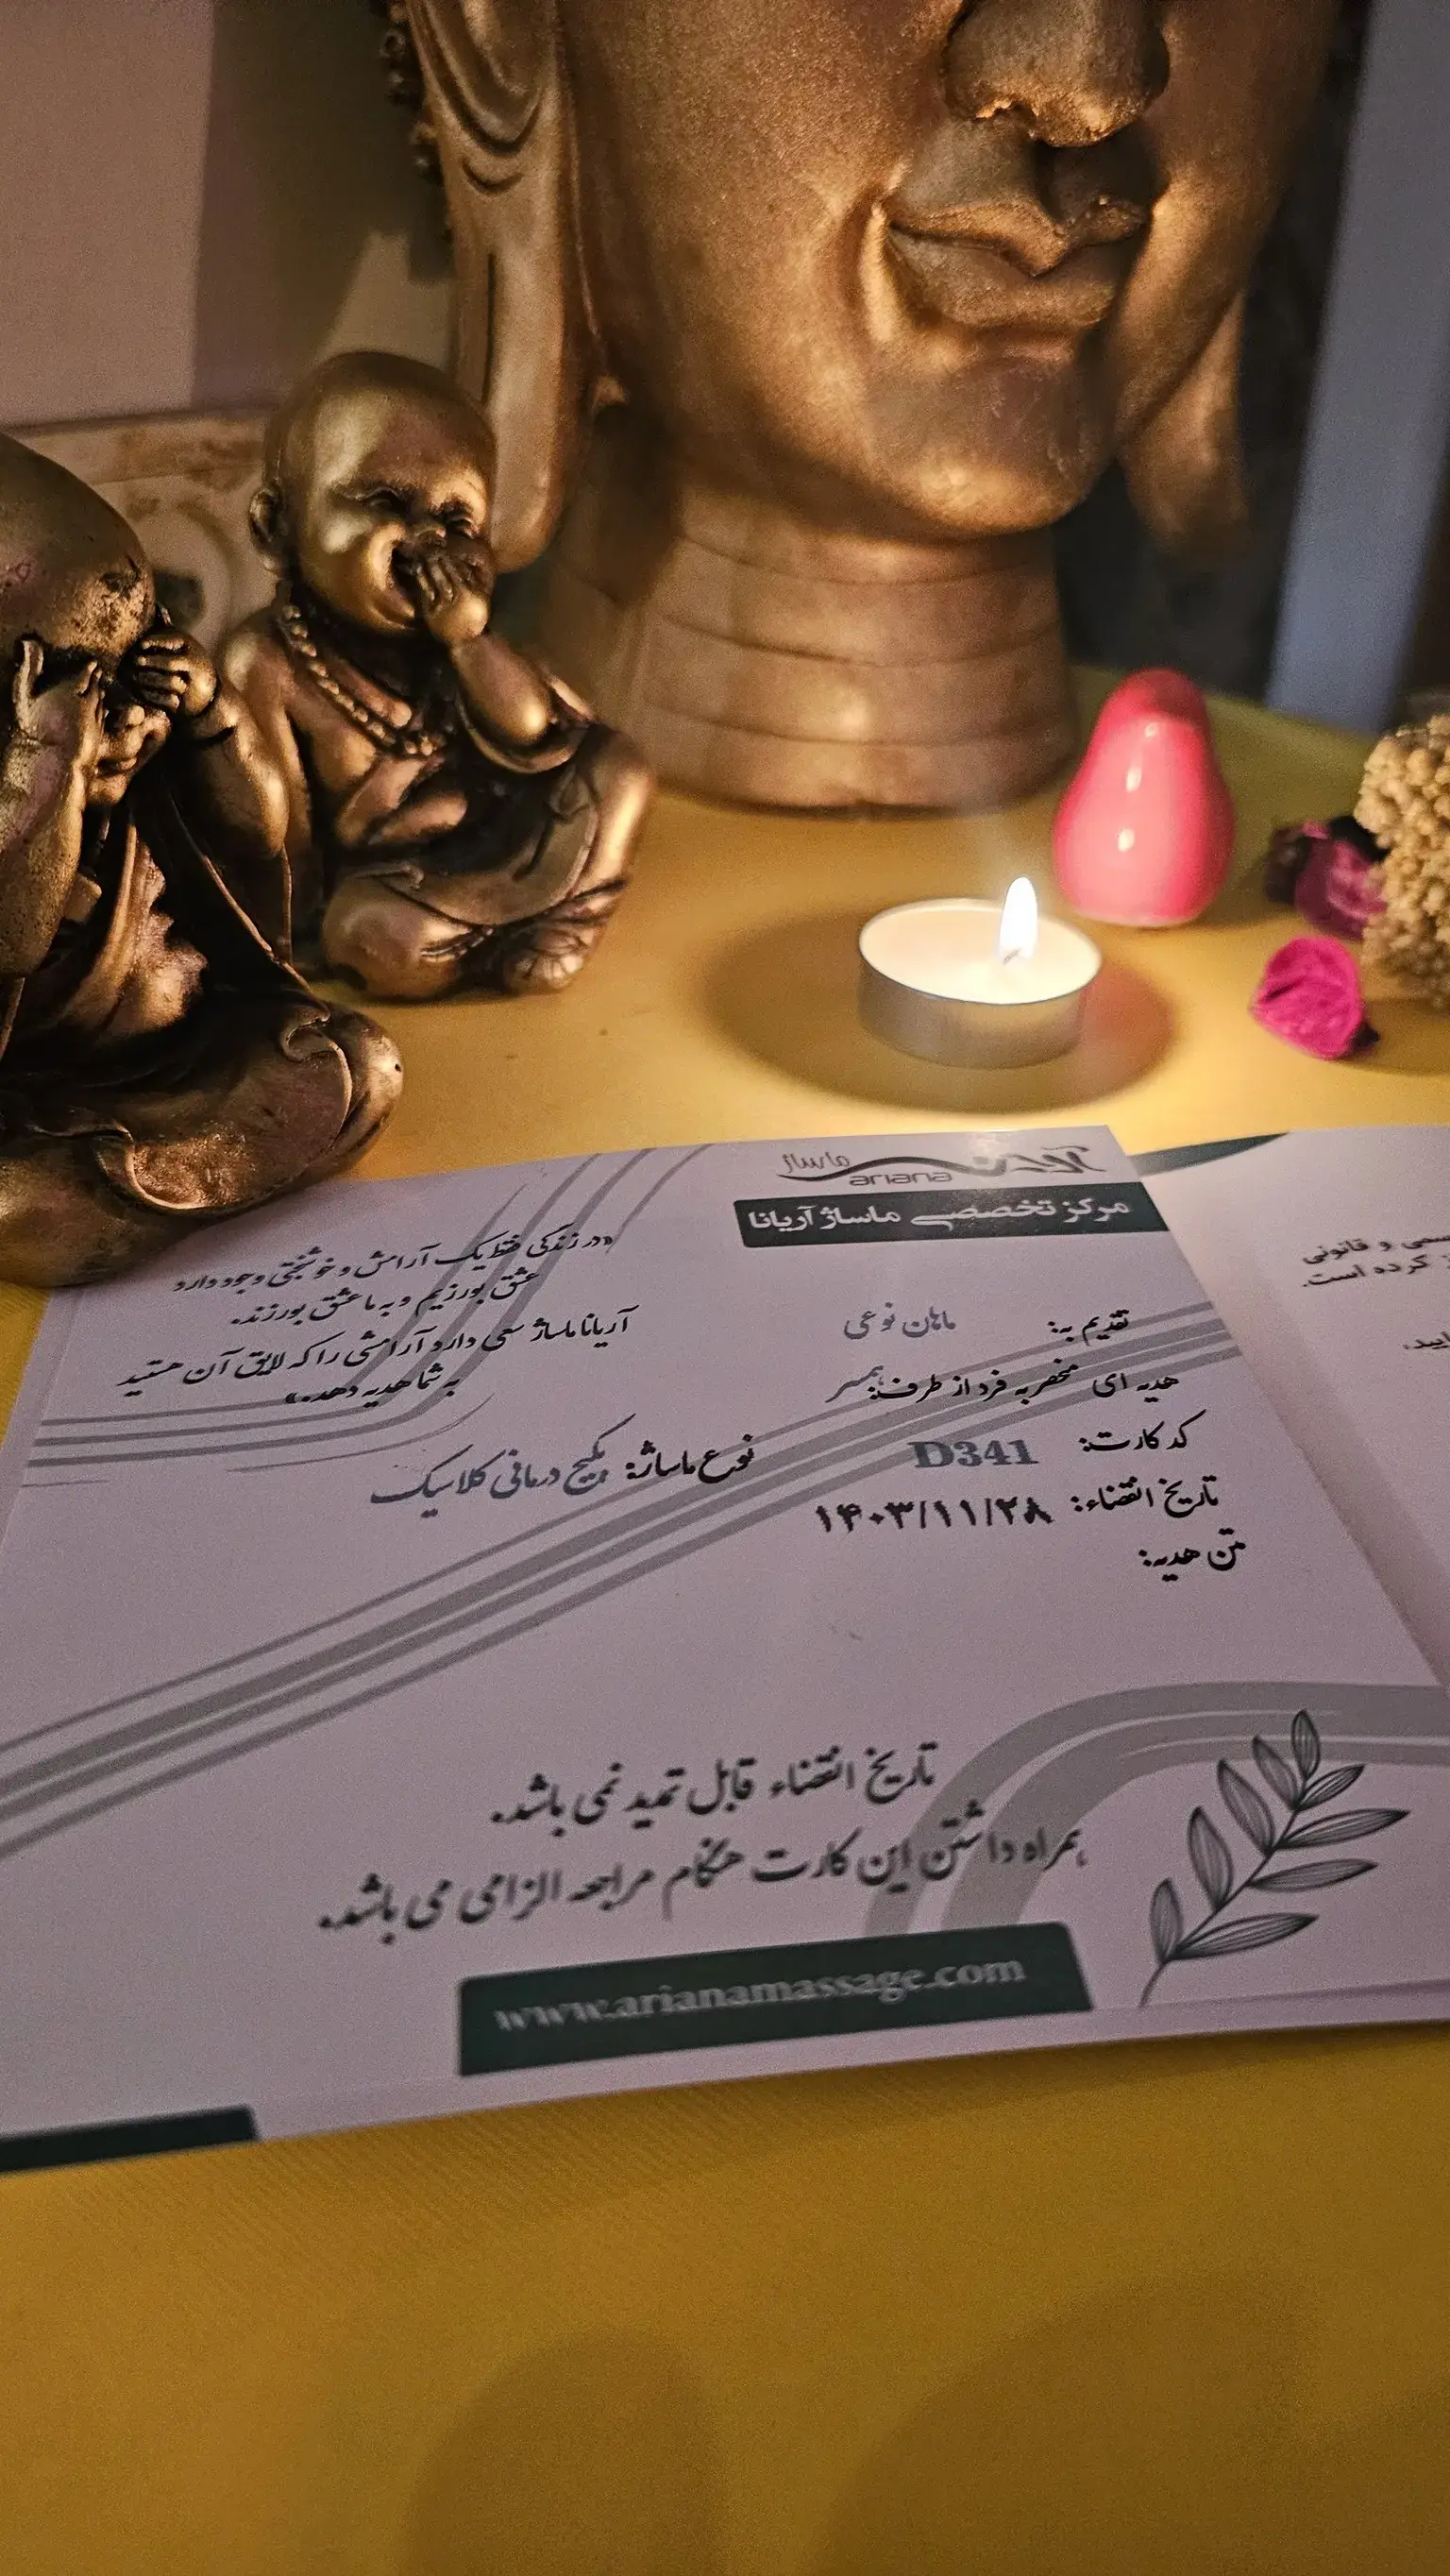 آریانا ماساژ
ariana
مرکز تخصصی ماساژ آریانا
تقدیم به: ماهان نوعی
هدیه ای منحصر به فرد از طرف: همسر
کد کارت: D341
تاریخ انقضاء: ۱۴۰۳/۱۱/۲۸
متن هدیه:
«در زندگی فقط یک آرامش و خوشبختی وجود دارد
عشق بورزیم و به ما عشق بورزند.
آریانا ماساژ سعی دارد آرامشی را که لایق آن هستید
به شما هدیه دهد.»
نوع ماساژ: پکیج درمانی کلاسیک
تاریخ انقضاء قابل تمدید نمی باشد.
همراه داشتن این کارت هنگام مراجعه الزامی می باشد.
www.arianamassage.com
و قانونی
کرده است.